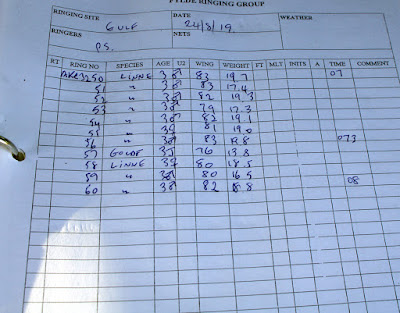 FYLDE RINGING GROUP
RINGING SITE GULF DATE 24/8/19. WEATHER
RINGERS P.S. NETS
RT RING NO SPECIES AGE U2 WING WEIGHT FT MLT INITS A TIME COMMENT
3250 LINNE 38 83 19.7 07
51 " 38 83 17.4
52 " 38 82 19.3
53 " 38 79 17.3
54 " 38 82 19.1
55 " 81 19.0
56 " 38 83 073
57 GOLDF 76 13.8
58 LINNE 80 18.5
59 " 80 16.5
60 " 38 82 08